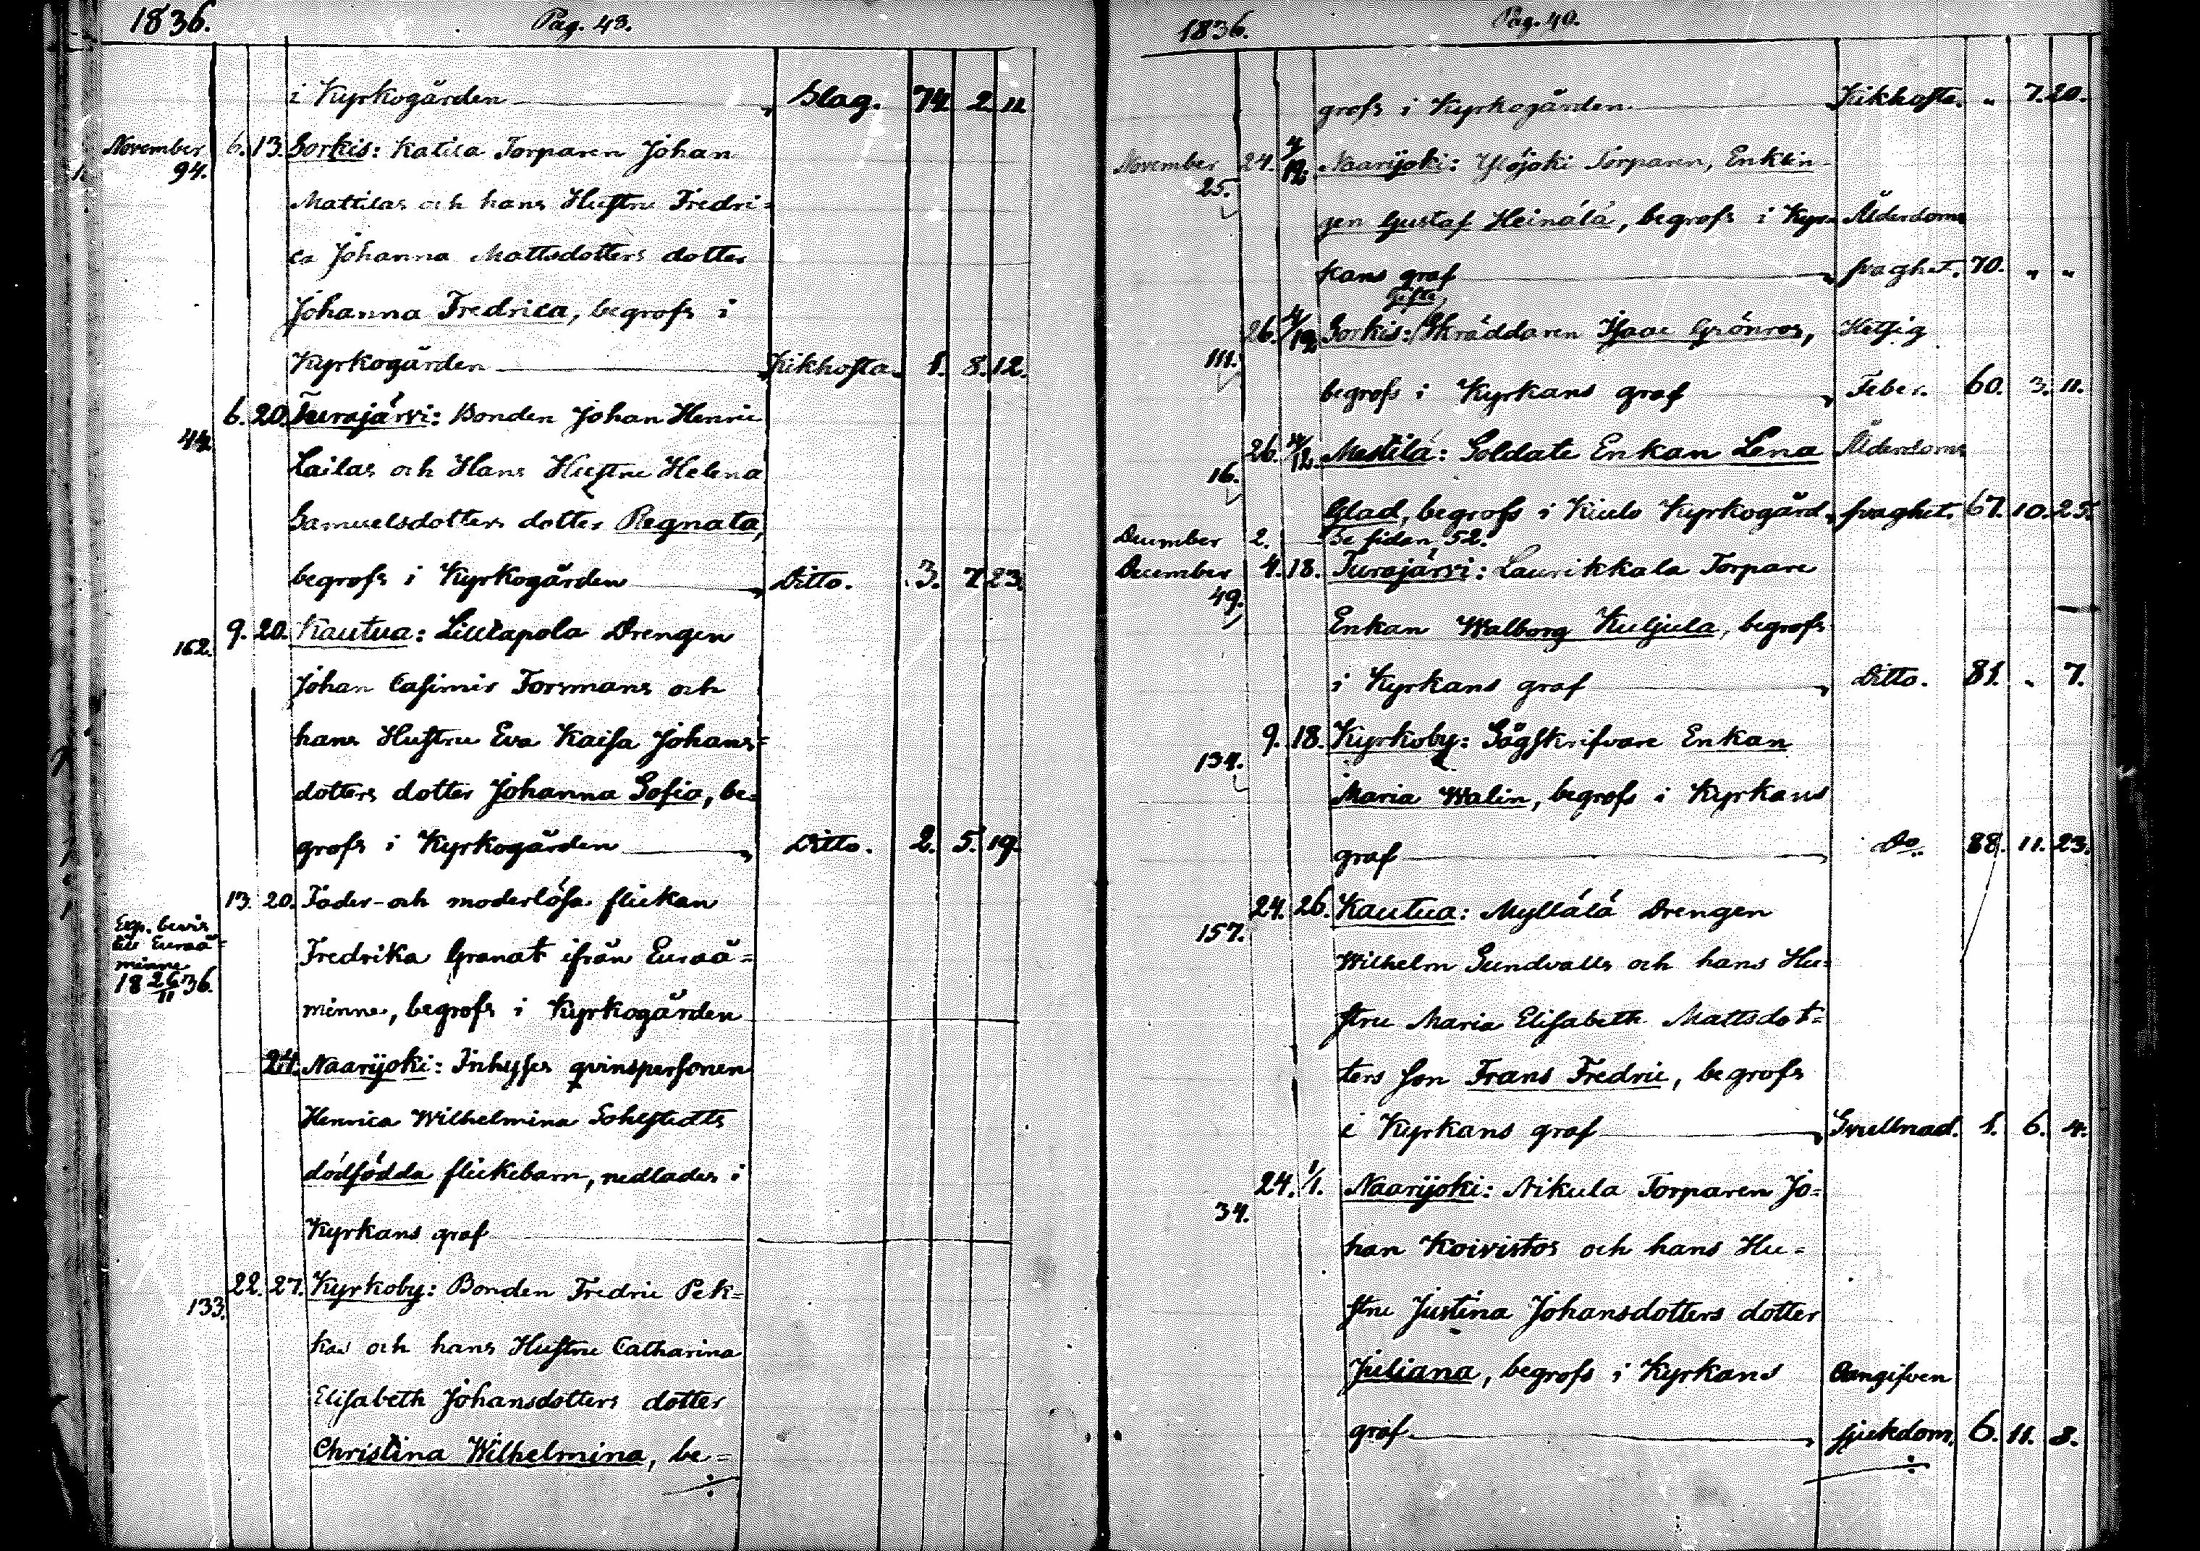 1836. Pag. 43.
i Kyrkogården Slag. 74. 2. 11.
November 6. 13. Sorkis: Katila Torparen Johan
94.
Mattilas och hans Hustru Fredri=
ca Johanna Mattsdotters dotter
Johanna Fredrica, begrofs i
Kyrkogården Kikhosta. 1. 8. 12.
6. 20. Turajärvi: Bonden Johan Henric
44.
Lailas och Hans Hustru Helena
Samuelsdotters dotter Regnata,
begrofs i Kyrkogården Ditto. 3. 7. 23.
9. 20. Kautua: Liutapola Drengen
162.
Johan Casimir Forsmans och
hans Hustru Eva Kaisa Johans=
dotters dotter Johanna Sofia, be=
grofs i Kyrkogården Ditto. 2. 5. 19.
13. 20. Fader- och moderlösa flickan
Exp. bevis
till Euraå=
minne
18 26/11 36.
Fredrika Granat ifrån Euraå=
minne, begrofs i Kyrkogården
24. Naarijoki: Inhyses qvinspersonen
Henrica Wilhelmina Sohlstedts
dödfödda flickebarn, nedlades i
Kyrkans graf
22. 27. Kyrkoby: Bonden Fredric Pek=
133.
kas och hans Hustru Catharina
Elisabeth Johansdotters dotter
Christina Wilhelmina, be=
1836. Pag. 40.
grofs i Kyrkogården Kikhosta. " 7. 20.
November 24. 4/12. Naarijoki: Ylöjoki Torparen, Enklin
25.
gen Gustaf Heinälä, begrofs i Kyr= Ålderdoms
kans graf svaghet. 70. " "
Gifte
26. 4/12 Sorkis: Skräddaren Isaac Grönros, Hetsig
111.
begrofs i Kyrkans graf Feber. 60. 3. 11.
26. 4/12. Mestilä: Soldate Enkan Lena Ålderdoms
16.
Glad, begrofs i Kiulo Kyrkogård, svaghet. 67. 10. 25.
December 2. Se sidan 52.
December 4. 18. Turajärvi: Laurikkala Torpare
49.
Enkan Walborg Kuljula, begrofs
i Kyrkans graf Ditto. 81. " 7.
9. 18. Kyrkoby: Sågskrifvare Enkan
134.
Maria Walin, begrofs i Kyrkans
graf Do. 88. 11. 23.
24. 26. Kautua: Myllälä Drengen
157.
Wilhelm Sundvalls och hans Hu=
stru Maria Elisabeth Mattsdot=
ters son Frans Fredric, begrofs
i Kyrkans graf Svullnad. 1. 6. 4.
24. 1/1. Naarijoki: Nikula Torparen Jo=
34.
han Koivistos och hans Hu=
stru Justina Johansdotters dotter
Juliana, begrofs i Kyrkans Oangifven
graf sjukdom. 6. 11. 8.